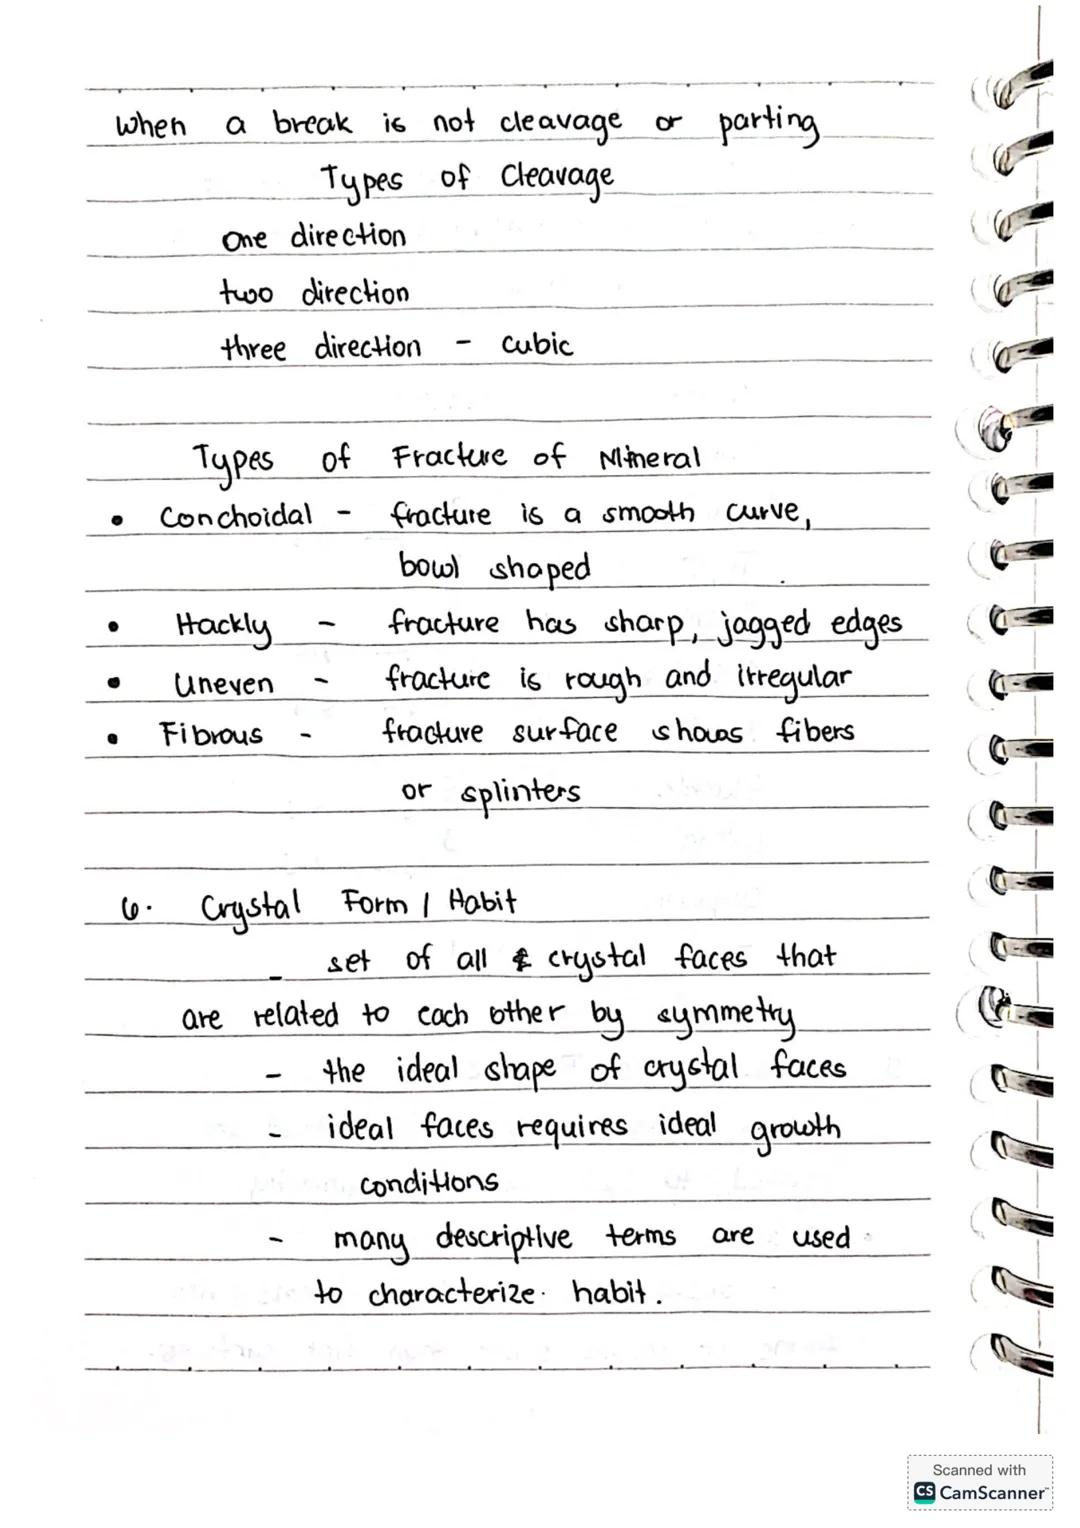 when a break is not cleavage or parting
Types of Cleavage
one direction
two direction
three direction - cubic
Types of Fracture of Mineral
• Conchoidal - fracture is a smooth curve,
bowl shaped
• Hackly - fracture has sharp, jagged edges
• Uneven - fracture is rough and irregular
• Fibrous - fracture surface shows fibers
or splinters
6. Crystal Form / Habit
- set of all crystal faces that
are related to each other by symmetry
- the ideal shape of crystal faces
- ideal faces requires ideal growth
conditions
- many descriptive terms are used
to characterize habit.
Scanned with
CS CamScanner